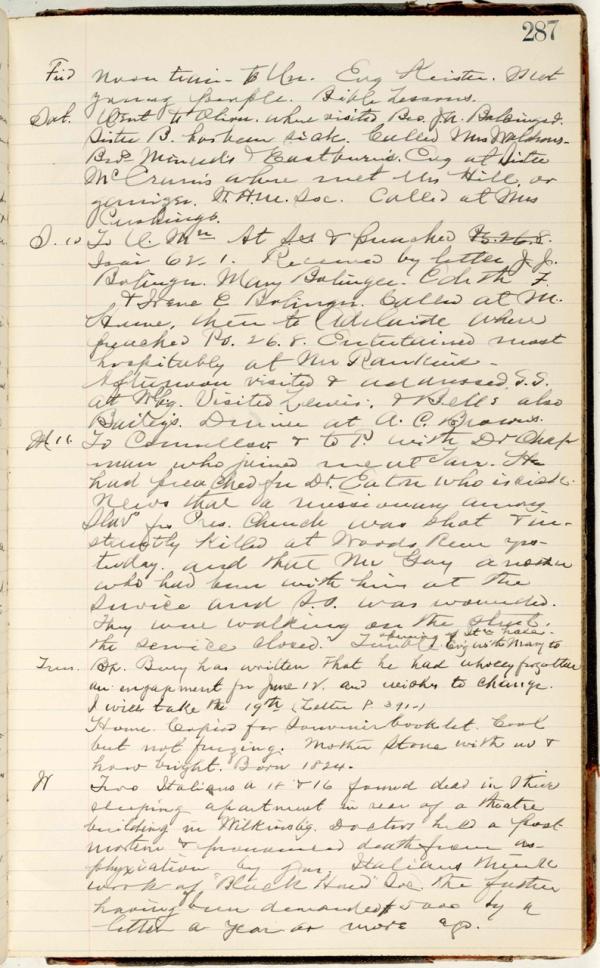 287
Fri Noon train - to Un. Evg Keister. Met
young people. Bible Lessons.
Sat. Went to Olive. where visited Bro. J. A. Bolinger.
Sister B. has been sick. Called Mrs Waldrons.
Bros & Eastburn's. Evg at Sister
McCrum's where met Mrs Hill, or
ganizer. W. Hm. Soc. Called at Mrs
Cushings.
S. 10 To U. At S.S. & preached Ps. 26. 8.
Isai 62. 1. Received by letter, J. J.
Bolinger. Mary Bolinger. Edith F.
& Irene E Bolinger. Called at M.
Hawe, then to Adelaide where
preached Ps. 26. 8. Entertained most
hospitably at Mr Rankins -
Afternoon visited & addressed S.S.
at Visited Lewis', & Bells also
Bailey's. Dinner at A. C. Browns.
M 11. To & to P with Dr Chap
man who joined me at He
had preached for Dr. Eaton who is sick.
News that a missionary among
Slavs for Pres. Church was shot & in-
stantly killed at Woods Run yes-
terday. and that Mr Gay another
who had been with him at the
service and S.S. was wounded.
They were walking on the street.
the service closed. opening of St's Evg with Mary to
Tues. Br. Bury has written that he had wholly forgotten
an engagement for June 12. and wishes to change.
I will take the 19th (Letter P. 391-)
Home. Copied for Souvenir booklet. Cool
but not freezing. Mother Stone with us &
how bright. Born 1824.
W Two Italians a 18 & 16 found dead in their
sleeping apartment in rear of a theatre
building in Wilkinsbg. Doctors held a post
mortem & pronounced death from as-
phyxiation by gas. Italians think
work of "Black Hand" Soc. the father
having been demanded $5000 by a
letter a year or more ago.